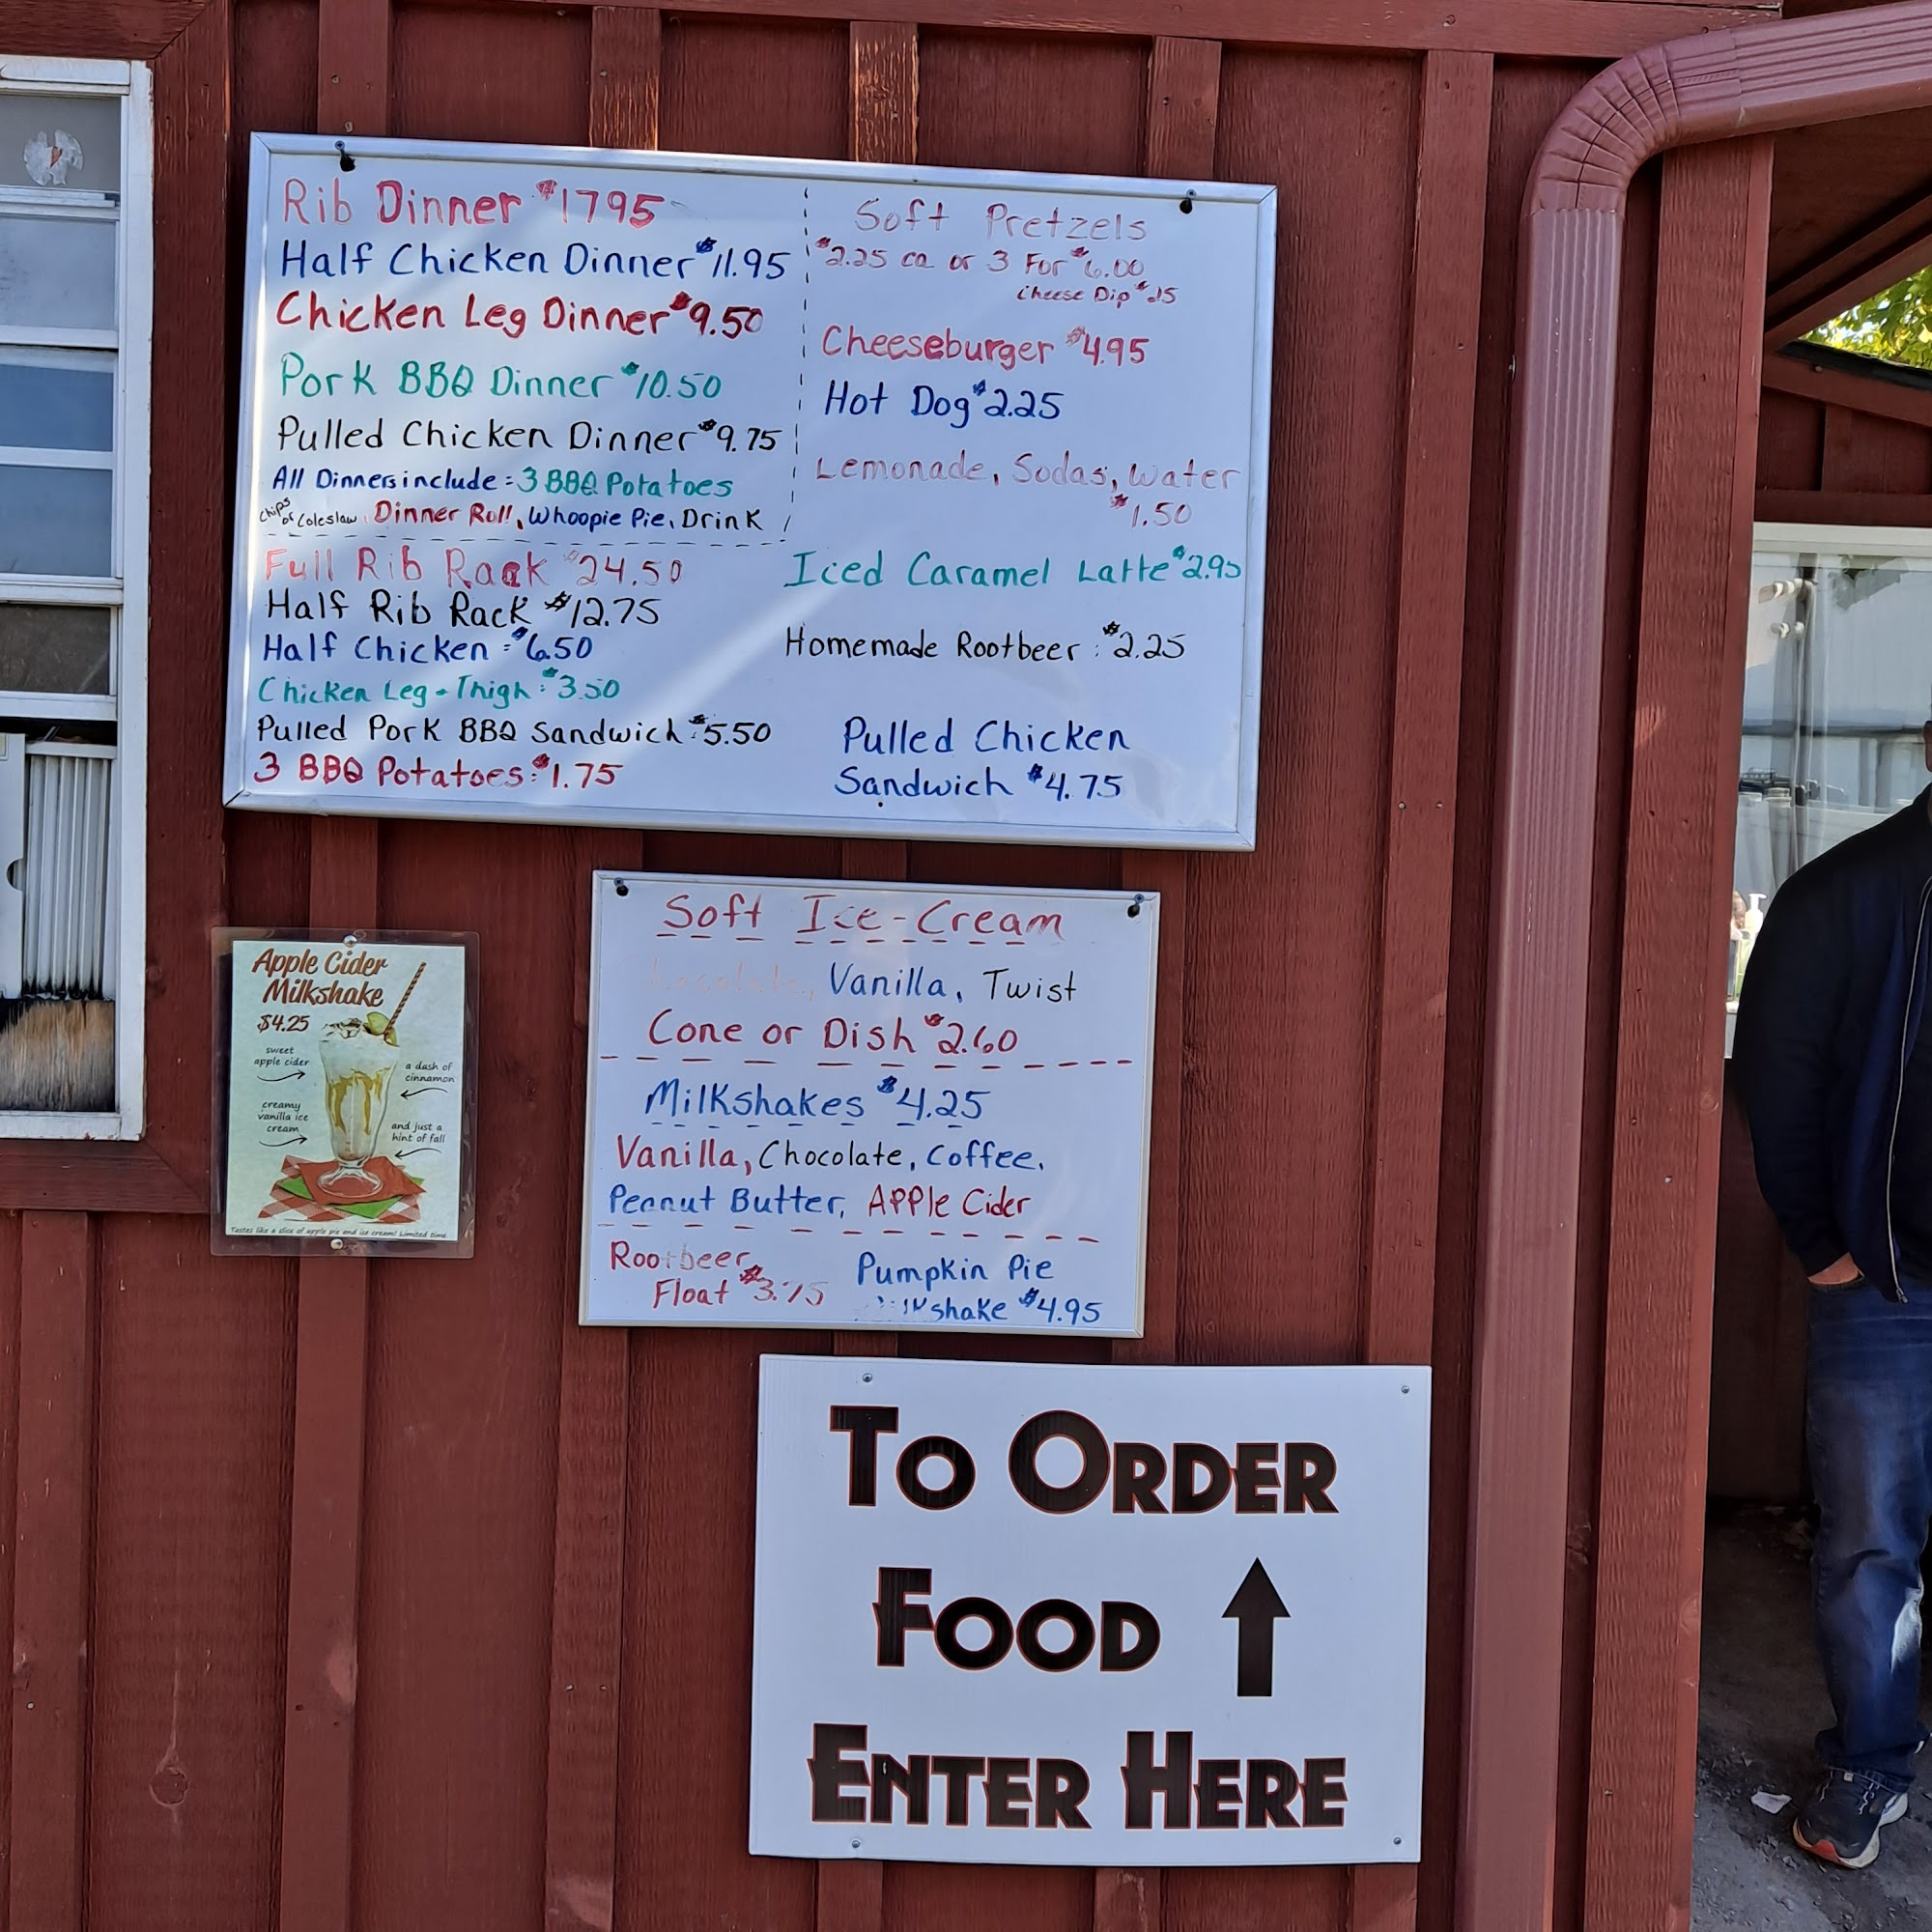 Rib Dinner $1795
Half Chicken Dinner $11.95
Chicken Leg Dinner $9.50
Pork BBQ Dinner $10.50
Pulled Chicken Dinner $9.75
All Dinners include: 3 BBQ Potatoes
Chips or Coleslaw, Dinner Roll, Whoopie Pie, Drink
Full Rib Rack $24.50
Half Rib Rack $12.75
Half Chicken = $6.50
Chicken Leg - Thigh: $3.50
Pulled Pork BBQ Sandwich: $5.50
3 BBQ Potatoes: $1.75
Soft Pretzels
$2.25 ea or 3 For $6.00
Cheese Dip
Cheeseburger $4.95
Hot Dog $2.25
Lemonade, Sodas, Water
$1.50
Iced Caramel Latte $2.95
Homemade Rootbeer: $2.25
Pulled Chicken
Sandwich $4.75
Apple Cider
Milkshake
$4.25
sweet
apple cider
a dash of
cinnamon
creamy
vanilla ice
cream
and just a
hint of fall
Tastes like a slice of apple pie and ice cream! Limited time
Soft Ice-Cream
Vanilla, Twist
Cone or Dish $2.60
Milkshakes $4.25
Vanilla, Chocolate, Coffee,
Peanut Butter, Apple Cider
Rootbeer
Float $3.75
Pumpkin Pie
Milkshake $4.95
To Order
Food ↑
Enter Here